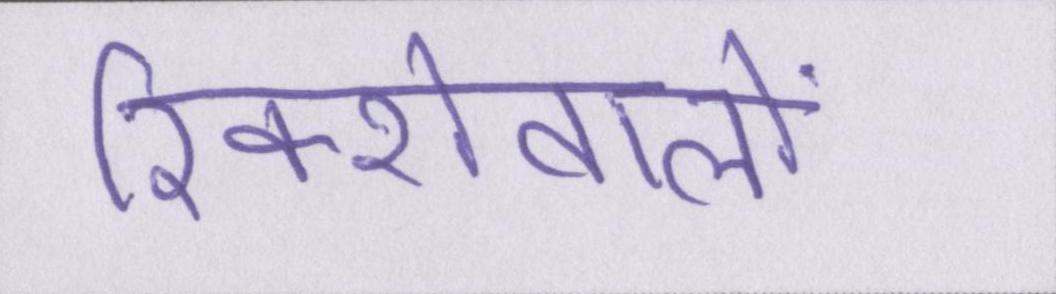 रिक्शेवालों